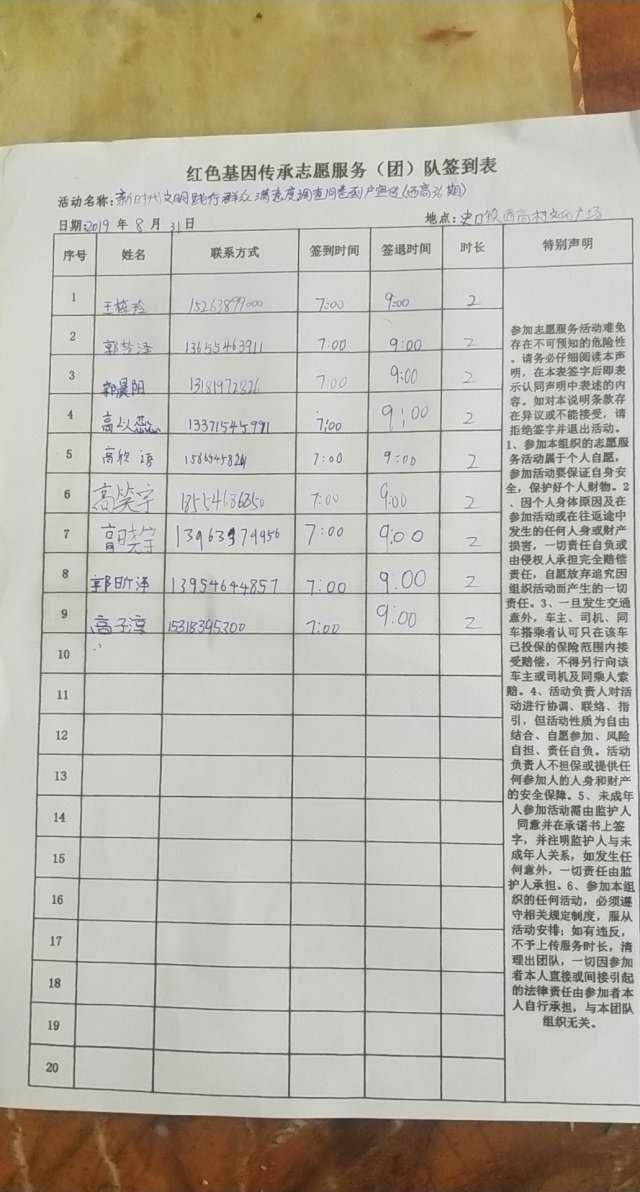 红色基因传承志愿服务（团）队签到表
活动名称：新时代文明践行群众满意度调查问卷到户宣传（西高36期）
日期：2019 年 8 月 31 日 地点：史口镇西高村文化广场
序号 姓名 联系方式 签到时间 签退时间 时长 特别声明
1 15263899000 7:00 9:00 2
2 13655463911 7:00 9:00 2
3 郭晨阳 7:00 9:00 2
4 13371545991 7:00 9:00 2
5 7:00 9:00 2
6 高笑宇 7:00 9:00 2
7 7:00 9:00 2
8 郭昕泽 13954644857 7:00 9:00 2
9 高子淳 15318395300 7:00 9:00 2
10
11
12
13
14
15
16
17
18
19
20
参加志愿服务活动难免
存在不可预知的危险性
。请务必仔细阅读本声
明，在本表签字后即表
示认同声明中表述的内
容。如对本说明条款存
在异议或不能接受，请
拒绝签字并退出活动。
1、参加本组织的志愿服
务活动属于个人自愿，
参加活动要保证自身安
全，保护好个人财物。2
、因个人身体原因及在
参加活动或在往返途中
发生的任何人身或财产
损害，一切责任自负或
由侵权人承担完全赔偿
责任，自愿放弃追究因
组织活动而产生的一切
责任。3、一旦发生交通
意外，车主、司机、同
车搭乘者认可只在该车
已投保的保险范围内接
受赔偿，不得另行向该
车主或司机及同乘人索
赔。4、活动负责人对活
动进行协调、联络、指
引，但活动性质为自由
结合、自愿参加、风险
自担、责任自负。活动
负责人不担保或提供任
何参加人的人身和财产
的安全保障。5、未成年
人参加活动需由监护人
同意并在承诺书上签
字，并注明监护人与未
成年人关系，如发生任
何意外，一切责任由监
护人承担。6、参加本组
织的任何活动，必须遵
守相关规定制度，服从
活动安排；如有违反，
不予上传服务时长，清
理出团队，一切因参加
者本人直接或间接引起
的法律责任由参加者本
人自行承担，与本团队
组织无关。